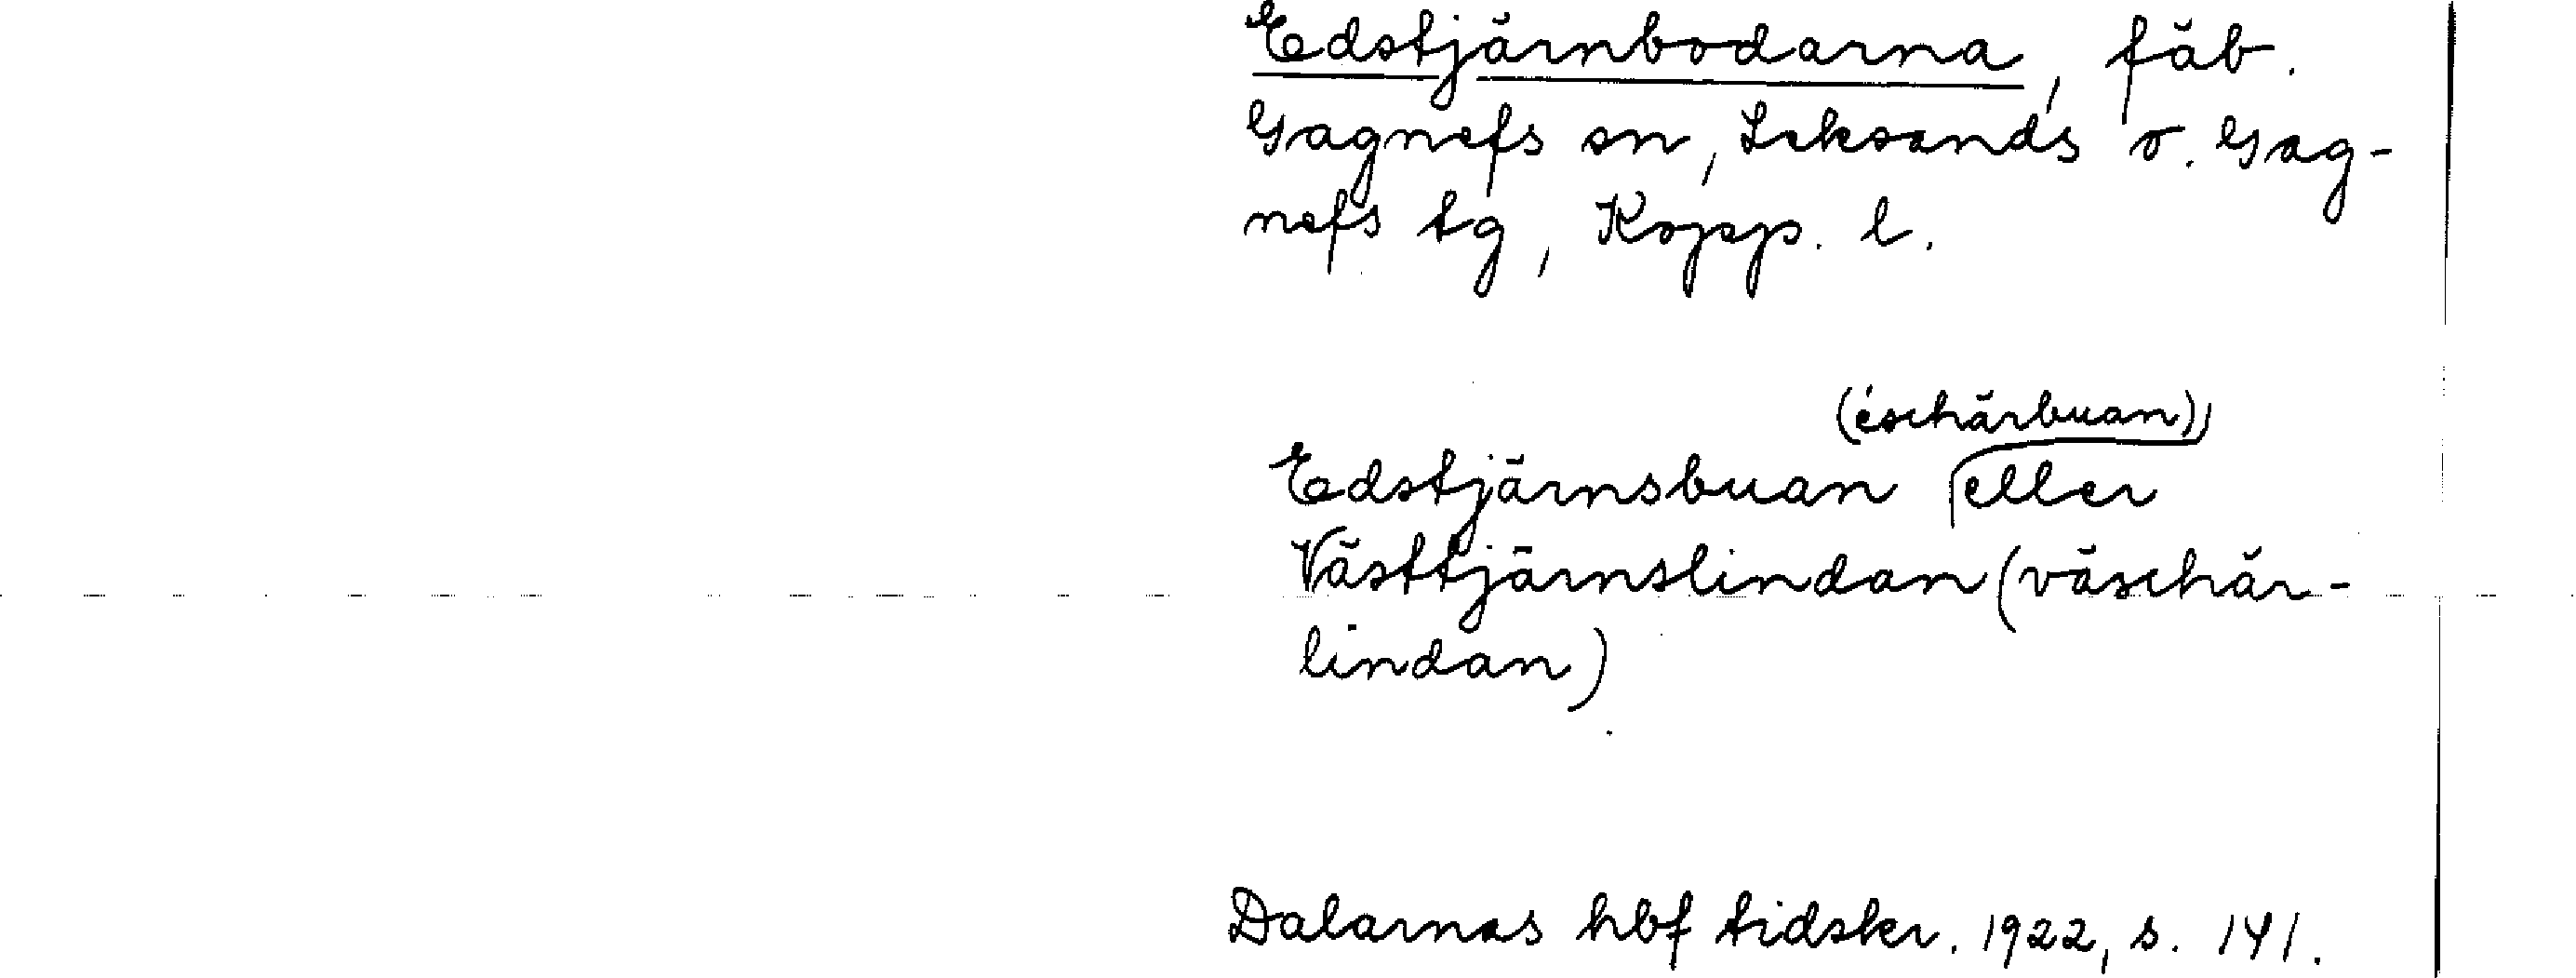 Edstjärnbodarna, fäb.
Gagnefs sn, Leksands o. Gag-
nefs tg, Kopp. l.
(éschärbuan)
Edstjärnsbuan eller
Västtjärnslindan (väschär-
lindan)
Dalarnas hbf tidskr. 1922, s. 141.